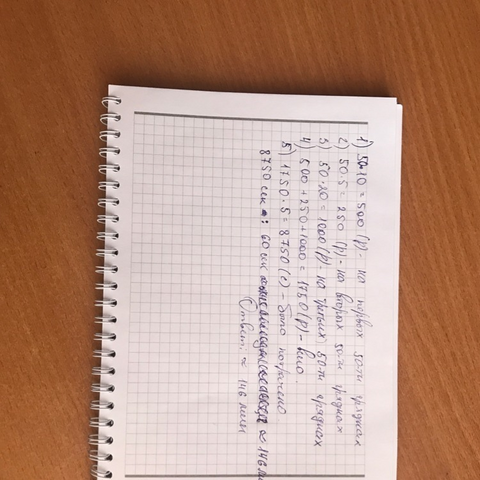 1) 50·10 = 500 (р) - на первых 50-ти грядках
2) 50·5 = 250 (р) - на вторых 50-ти грядках
3) 50·20 = 1000 (р) - на третьих 50-ти грядках
4) 500 + 250 + 1000 = 1750 (р) - всего
5) 1750·5 = 8750 (с) - было потрачено
8750 сек : 60 сек ≈ 146 ми
Ответ: ≈ 146 мин